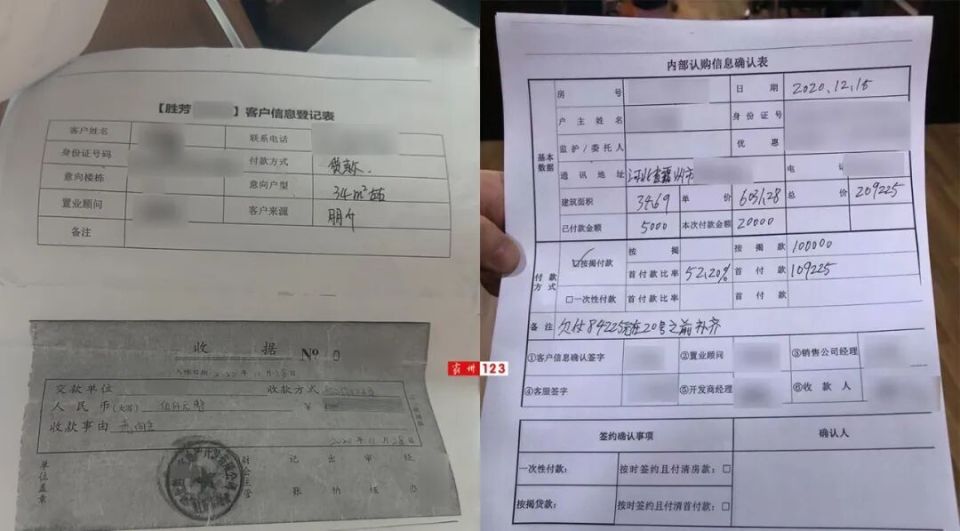 【胜芳 】客户信息登记表
客户姓名 联系电话
身份证号码 付款方式 贷款
意向楼栋 意向户型 34m²
置业顾问 客户来源 朋介
备注
收 据 No 0
2020年11月28日
交款单位 收款方式
人民币(大写) 伍仟元整 ¥
收款事由
2020年11月28日
单位盖章 财会主管 记账 出纳 审核 经办
霸州123
内部认购信息确认表
房号 日期 2020.12.15
户主姓名 身份证号
监护/委托人 优惠
基本数据
通讯地址 河北省霸州市 电
建筑面积 34.69 单价 6031.28 总价 209225
已付款金额 5000 本次付款金额 20000
付款方式
☑按揭付款 按揭 按揭款 100000
首付款比率 52.20% 首付款 109225
□一次性付款 首付款比率 首付款
备注 欠付84225元在20号之前补齐
①客户信息确认签字 ②置业顾问 ③销售公司经理
④客服签字 ⑤开发商经理 ⑥收款人
签约确认事项 确认人
一次性付款: 按时签约且付清房款: □
按揭贷款: 按时签约且付清首付款: □